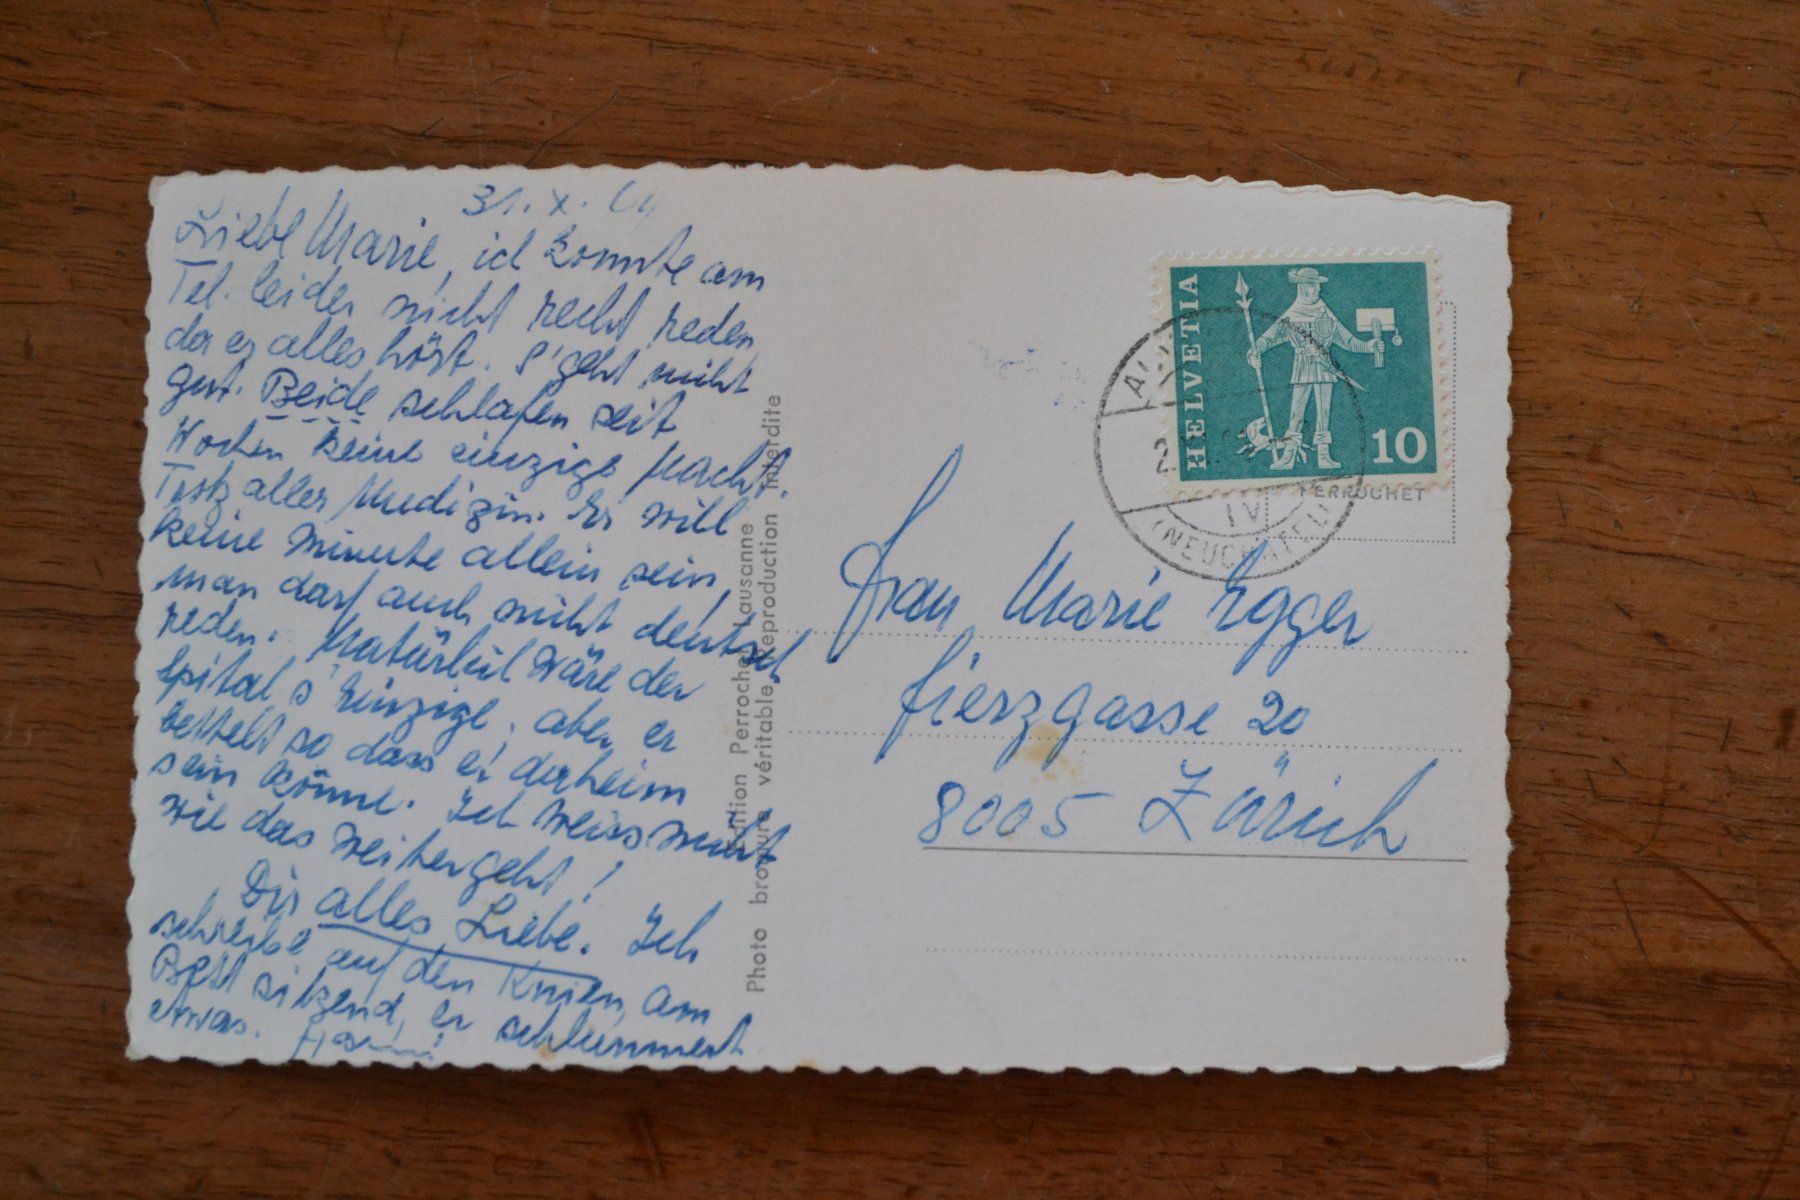 31. X. 64
Liebe Marie, ich konnte am
Tel. leider nicht recht reden
da er alles hört. S'geht nicht
gut. Beide schlafen seit
Wochen keine einzige Nacht.
Trotz aller Medizin. Er will
keine Minute allein sein,
man darf auch nicht deutsch
reden. Natürlich wäre der
Spital s'Einzige, aber er
bettelt so dass er daheim
sein könne. Ich weiss nicht
wie das weitergeht!
Dir alles Liebe. Ich
schreibe auf den Knien, am
Bett sitzend, er schlummert
etwas.
Edition Perrochet Lausanne
Photo bromure véritable Reproduction interdite
HELVETIA
10
PERROCHET
IV
(NEUCHATEL)
Frau Marie Egger
Fierzgasse 20
8005 Zürich